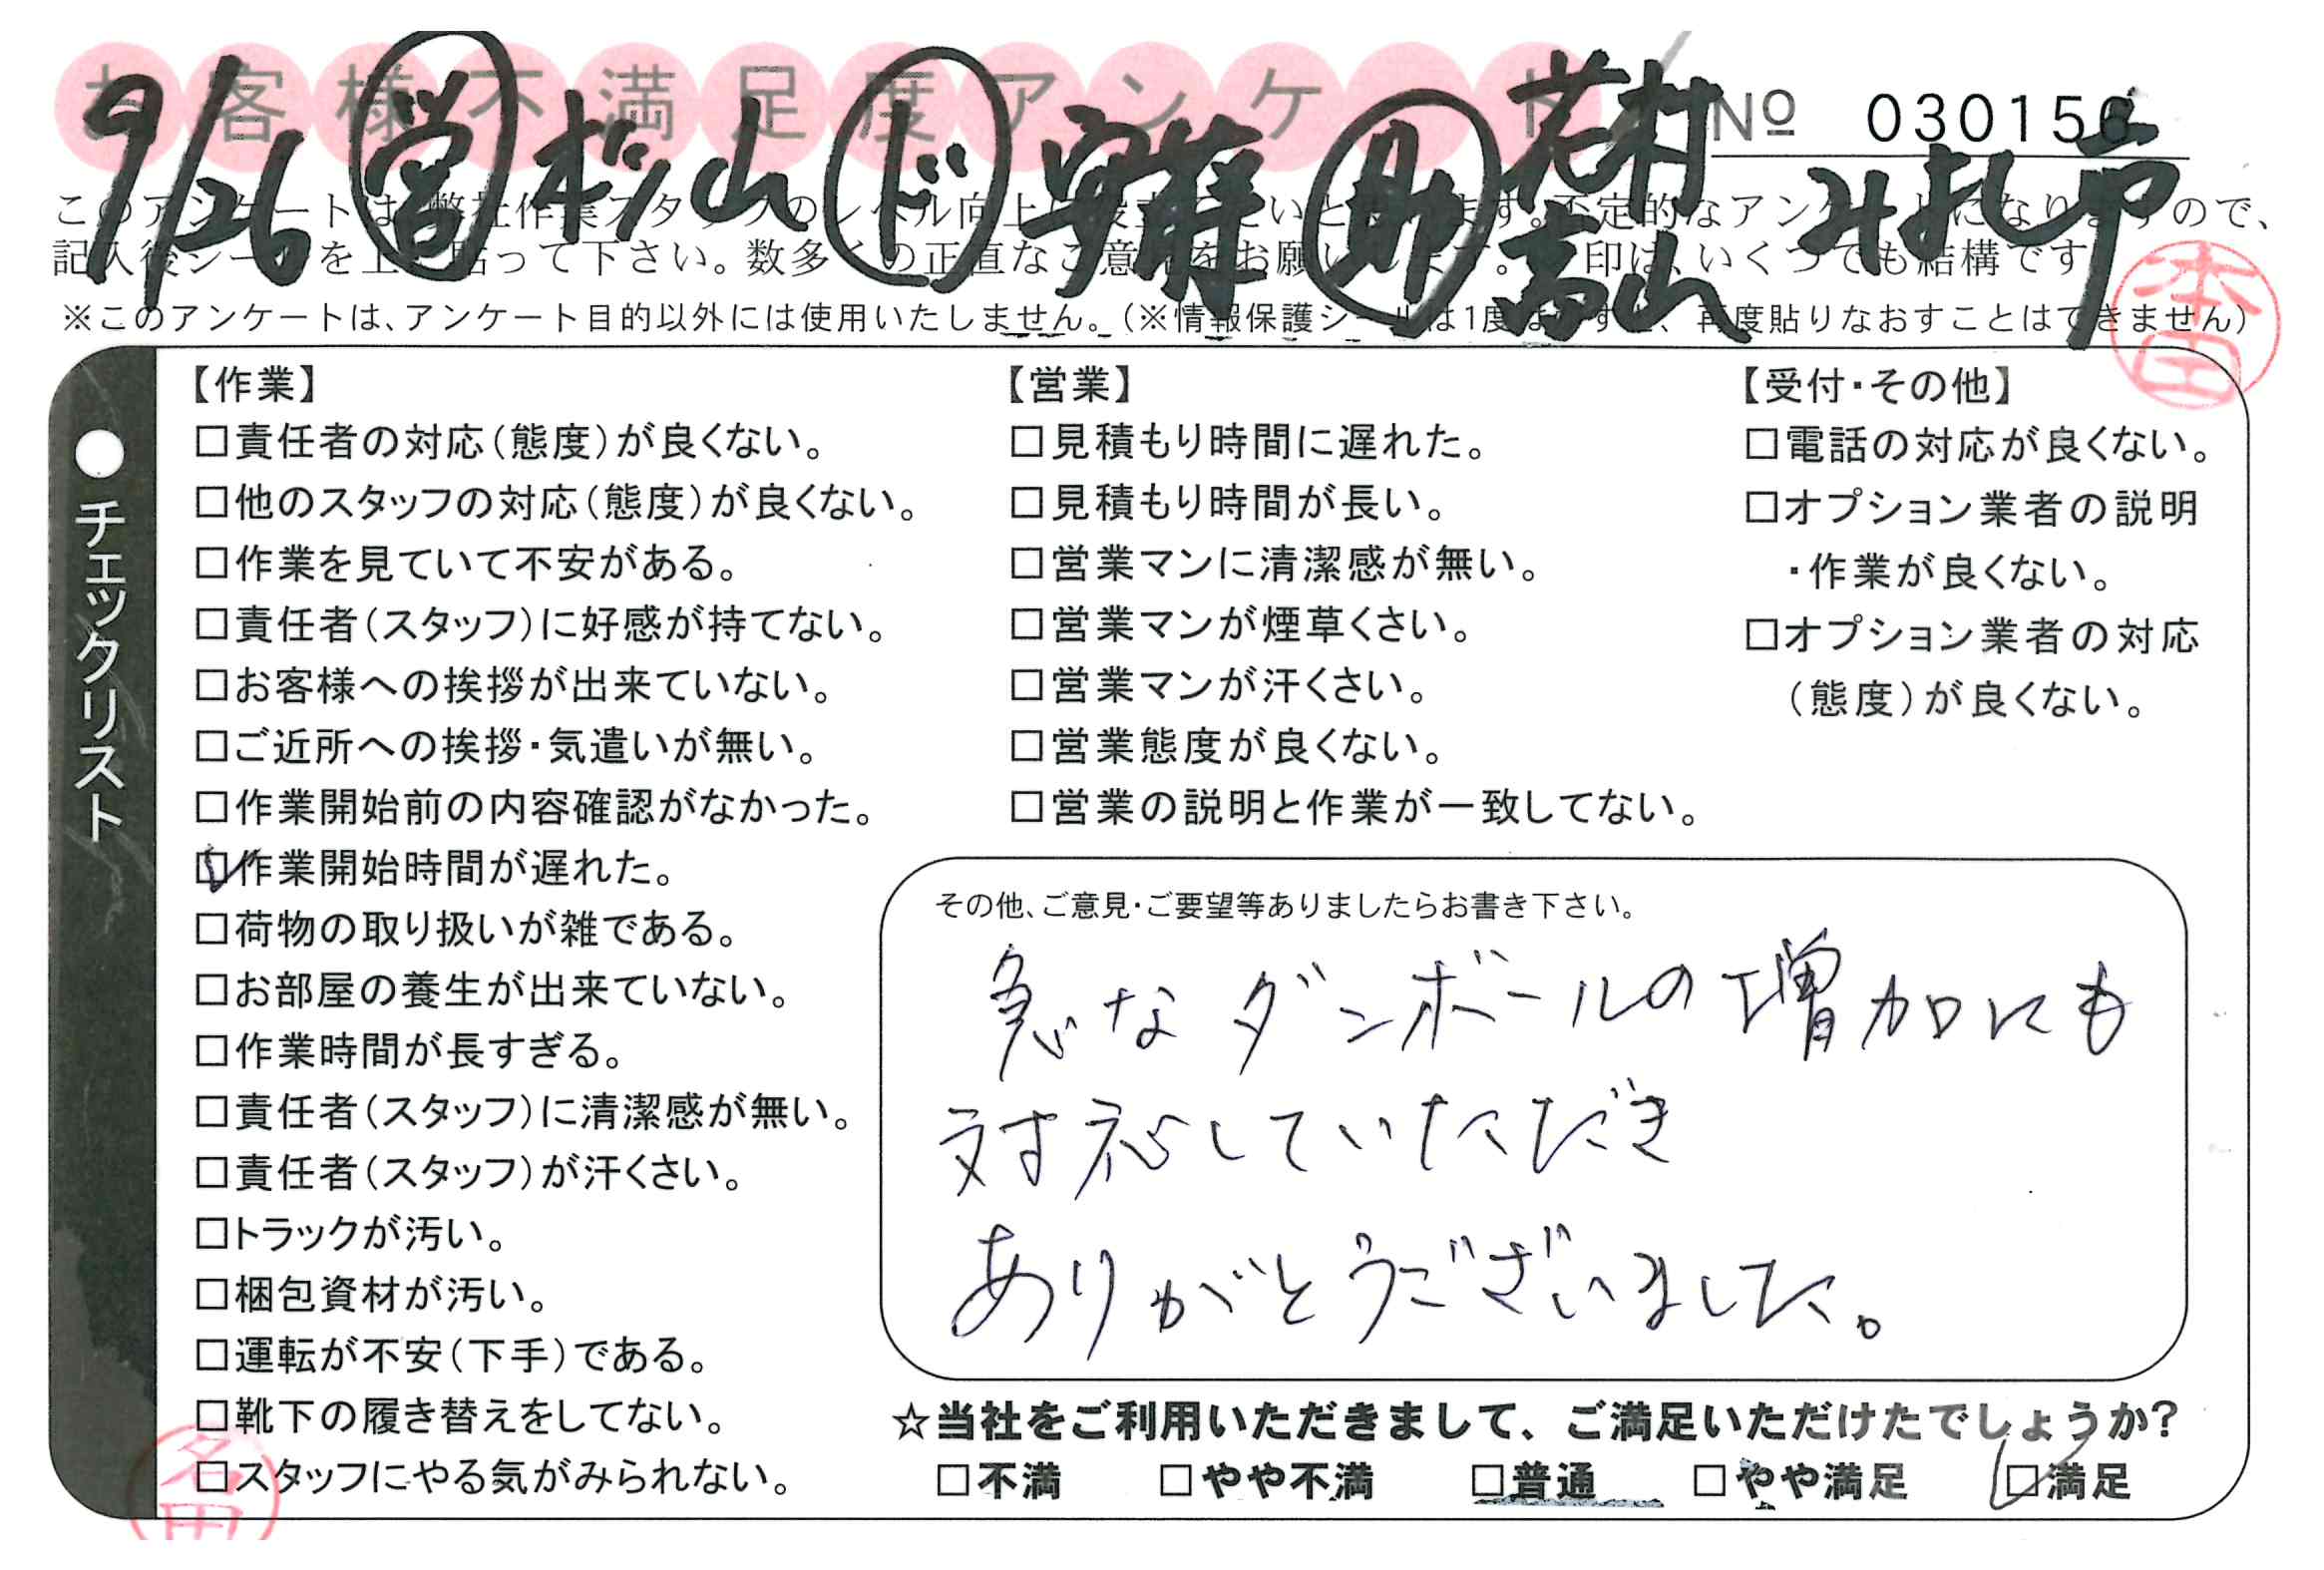 お客様不満足度アンケート
№ 030156
9/26 営 杉山 ド 安藤 助 若村 高山
このアンケートは、弊社作業スタッフのレベル向上に役立てたいと思います。不定的なアンケートになりますので、
記入後シールを上に貼って下さい。数多くの正直なご意見をお願いします。 印は、いくつでも結構です
※このアンケートは、アンケート目的以外には使用いたしません。(※情報保護シールは1度はがすと、再度貼りなおすことはできません)
本田
●チェックリスト
【作業】
□責任者の対応(態度)が良くない。
□他のスタッフの対応(態度)が良くない。
□作業を見ていて不安がある。
□責任者(スタッフ)に好感が持てない。
□お客様への挨拶が出来ていない。
□ご近所への挨拶・気遣いが無い。
□作業開始前の内容確認がなかった。
☑作業開始時間が遅れた。
□荷物の取り扱いが雑である。
□お部屋の養生が出来ていない。
□作業時間が長すぎる。
□責任者(スタッフ)に清潔感が無い。
□責任者(スタッフ)が汗くさい。
□トラックが汚い。
□梱包資材が汚い。
□運転が不安(下手)である。
□靴下の履き替えをしてない。
□スタッフにやる気がみられない。
【営業】
□見積もり時間に遅れた。
□見積もり時間が長い。
□営業マンに清潔感が無い。
□営業マンが煙草くさい。
□営業マンが汗くさい。
□営業態度が良くない。
□営業の説明と作業が一致してない。
【受付・その他】
□電話の対応が良くない。
□オプション業者の説明
・作業が良くない。
□オプション業者の対応
(態度)が良くない。
その他、ご意見・ご要望等ありましたらお書き下さい。
急なダンボールの増加にも
対応していただき
ありがとうございました。
☆当社をご利用いただきまして、ご満足いただけたでしょうか?
□不満 □やや不満 □普通 □やや満足 ☑満足